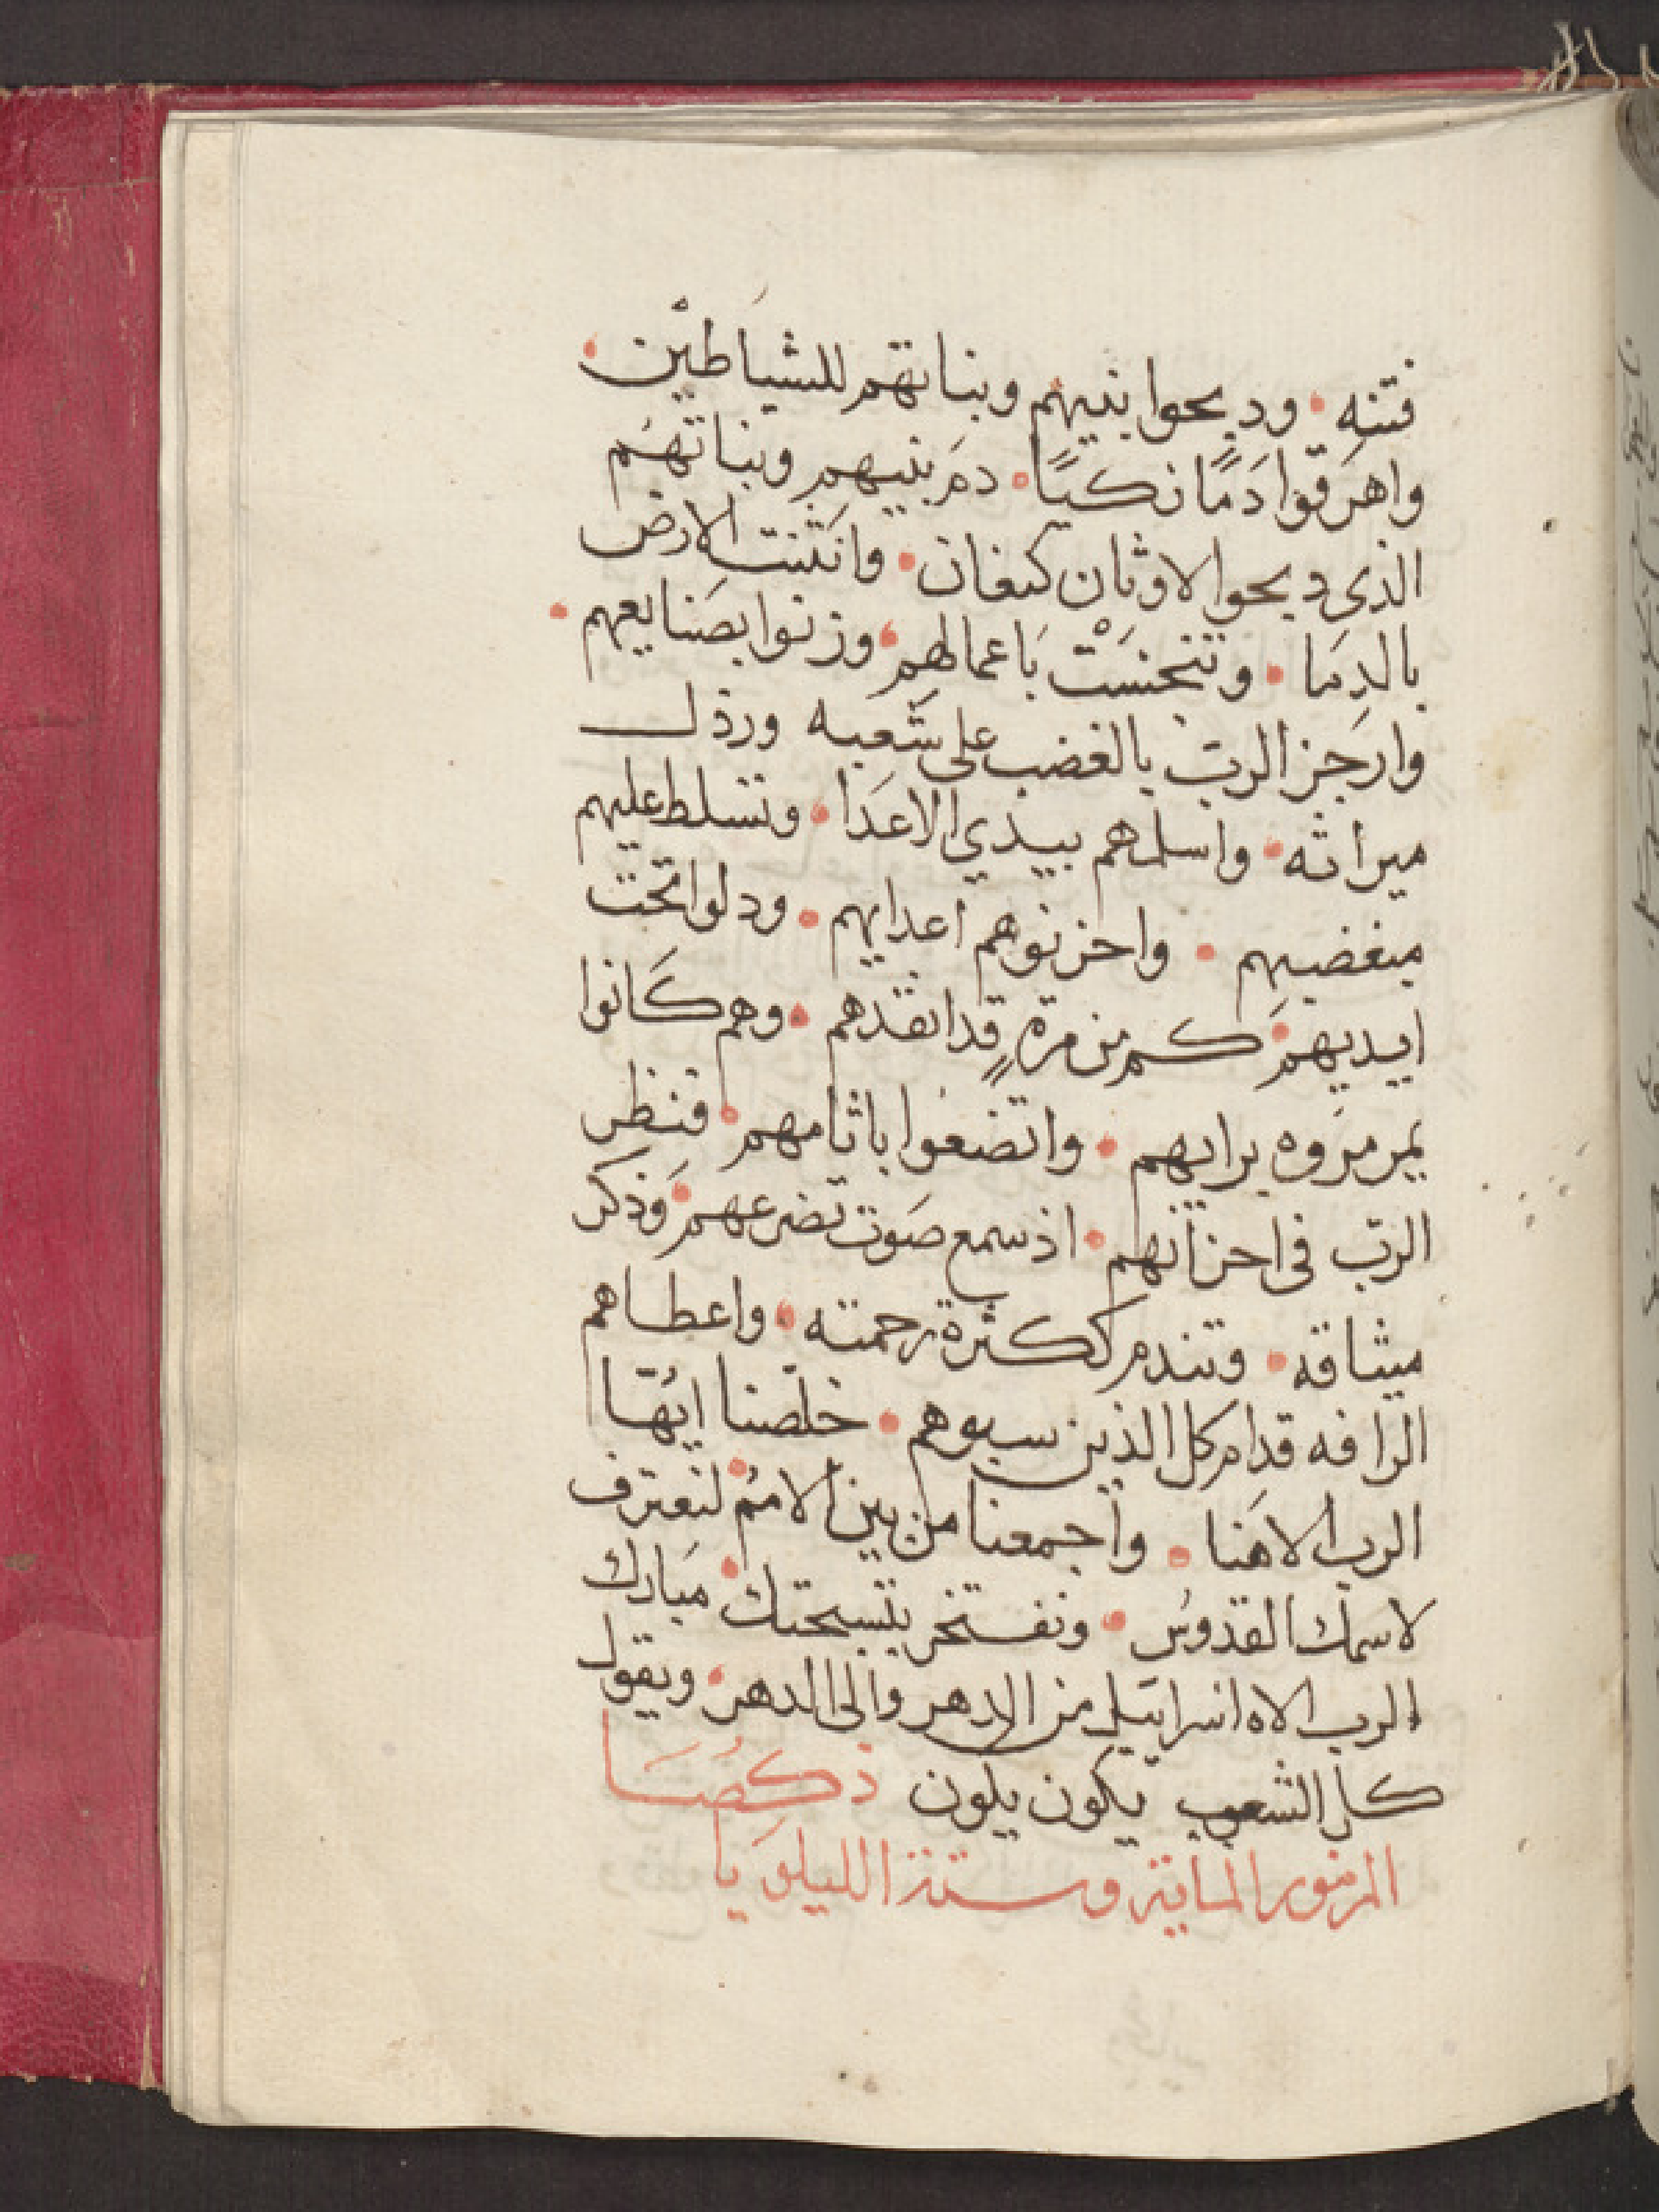 فتنه • ودبحوا بنيهم وبناتهم للشيَاطيْن •
واهرَقوّا دَمًا زكيًا • دمَ بنيهم وبناتهُم
الذى دبحوا لاوثان كنعان • وانتَنت الارض
بالدِمَا • وتنجسَتْ باعمالهم • وزنوا بصَنايعهم •
وارجز الربّ بالغضب على شَعبه ورذل
ميراثه • واسلمهم بيدي الاعدَا • وتسلط عليهم
مبغضيهم • واحزنوهم اعدايهم • ودلوا تحت
ايديهمَ • كم من مرةٍ قد انقدهم • وهم كَانوا
يمرمرَوه برايهم • واتضعوُا باثامهم • فنظر
الربّ فى احزانهم • اذ سمع صَوت تضرعهم • وَذكر
ميثاقه • وتندم ككثرة رحمته • واعطاهم
الرافه قدام كل الذين سبوهم • خلّصنا ايُهّا
الرب الاهَنا • واجمعنا من بين الامُم • لنعترف
لاسمك القدوسُ • ونفتخر بتسبحتك • مبَارك
الرب الاه اسراييل من الدهر والى الدهر • ويقول
كل الشعوب يكون يكون ذكصَا
المزمور الماية وستة الليلوَيا